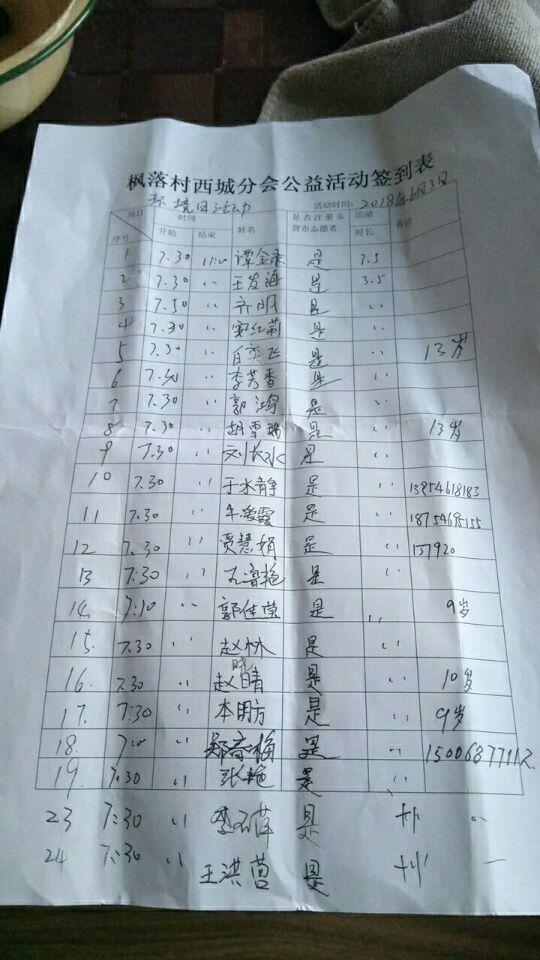 枫落村西城分会公益活动签到表
环境日活动 活动时间：2018年6月3日
项目 时间 姓名 是否注册东营市志愿者 活动时长 备注
序号 开始 结束
1 7.30 11:00 谭金录 是 7.5
2 7.30 〃 王发海 是 3.5
3 7.30 〃 齐明 是 〃
4 7.30 〃 红莉 是 〃
5 7.30 〃 飞 是 〃 13岁
6 7.30 〃 李芳香 是 〃
7 7.30 〃 郭鸿 是 〃
8 7.30 〃 胡雪 是 〃 13岁
9 7.30 〃 刘长水 是 〃
10 7.30 〃 于水静 是 〃 13954618183
11 7.30 〃 霞 是 〃
12 7.30 〃 贾慧娟 是 〃 157920
13 7:30 〃 鲁艳 是 〃
14. 7:30 〃 郭佳莹 是 〃 9岁
15. 7.30 〃 赵林 是 〃
16. 7.30 〃 赵晓晴 是 〃 10岁
17. 7:30 〃 方 是 〃 9岁
18. 7:00 〃 郑梅 是 〃
19. 7.30 〃 张艳 是 〃
23 7:30 〃 李萍 是 〃
24 7:30 〃 王洪营 是